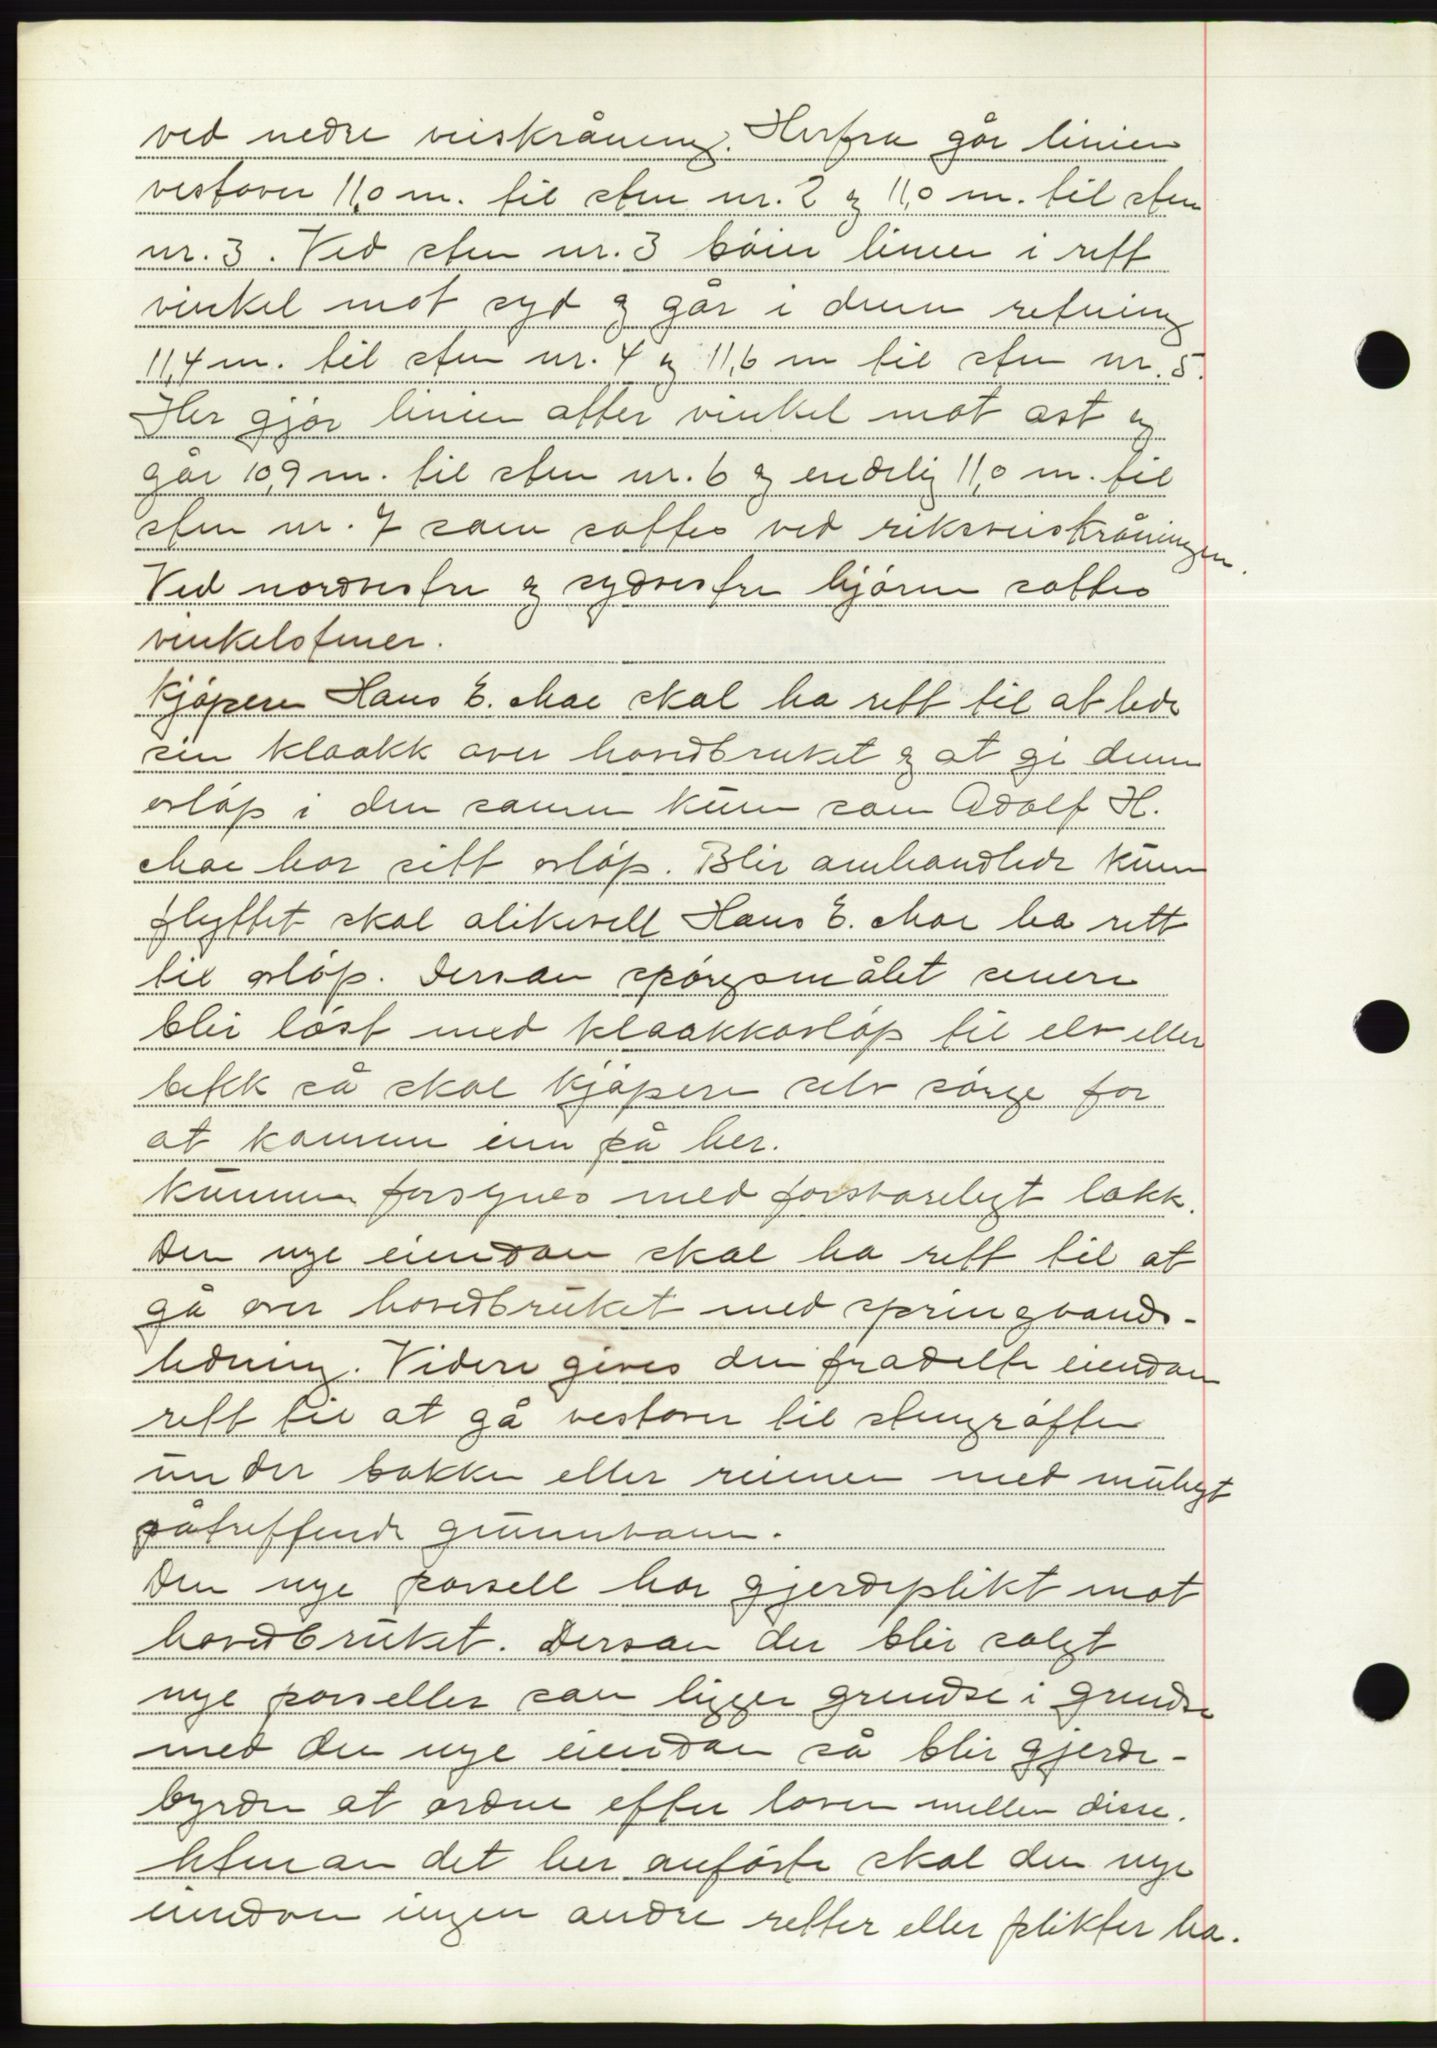 ved nedre veiskråning. Herfra går linien
vestover 11,0 m. til sten nr. 2 og 11,0 m. til sten
nr. 3. Ved sten nr. 3 böier linien i rett
vinkel mot syd og går i denne retning
11,4 m. til sten nr. 4 og 11,6 m til sten nr. 5.
Her gjör linien atter vinkel mot öst og
går 10,9 m. til sten nr. 6 og endelig 11,0 m. til
sten nr. 7 som sattes ved riksveiskråningen.
Ved nordvestre og sydvestre hjörne sattes
vinkelstener.
Kjöperen Hans E. Moe skal ha rett til at lede
sin kloakk over hovedbruket og at gi denne
avlöp i den samme kum som Adolf H.
Moe har sitt avlöp. Blir omhandlede kum
flyttet skal alikevell Hans E. Moe ha rett
til avlöp. Dersom spörgsmålet senere
blir löst med kloakkavlöp til elv eller
bekk så skal kjöperen selv sörge for
at komme inn på her.
Kummen forsynes med forsvareligt lokk.
Den nye eiendom skal ha rett til at
gå over hovedbruket med springvands-
ledning. Videre gives den fradelte eiendom
rett til at gå vestover til stengröften
under bakken eller rennen med muligt
påtreffende grunnvann.
Den nye parsell har gjerdeplikt mot
hovedbruket. Dersom der blir solgt
nye parseller som ligger grendse i grendse
med den nye eiendom så blir gjerde-
byrden at ordne efter loven mellem disse.
Utenom det her anförte skal den nye
eiendom ingen andre retter eller plikter ha.